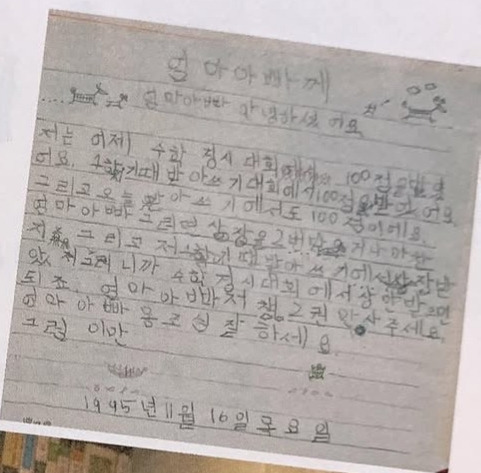 엄마아빠께
엄마아빠 안녕하셨어요
저는 어제 수학 경시 대회에서 100점을 받았
어요. 1학기때 받아쓰기대회에서 100점을 받았어요
그리고 오늘 받아쓰기에서도 100점이에요.
엄마아빠 그러면 상장을 2번 받
그리고 저 1학기때 받아쓰기에서 상장 받
았 그러니까 수학 경시대회에서 상 안받으면
되죠. 엄마 아빠 저 책 2권 만 사주세요.
엄마 아빠 몸조심 잘 하세요.
그럼 이만
1995년 11월 16일 목요일